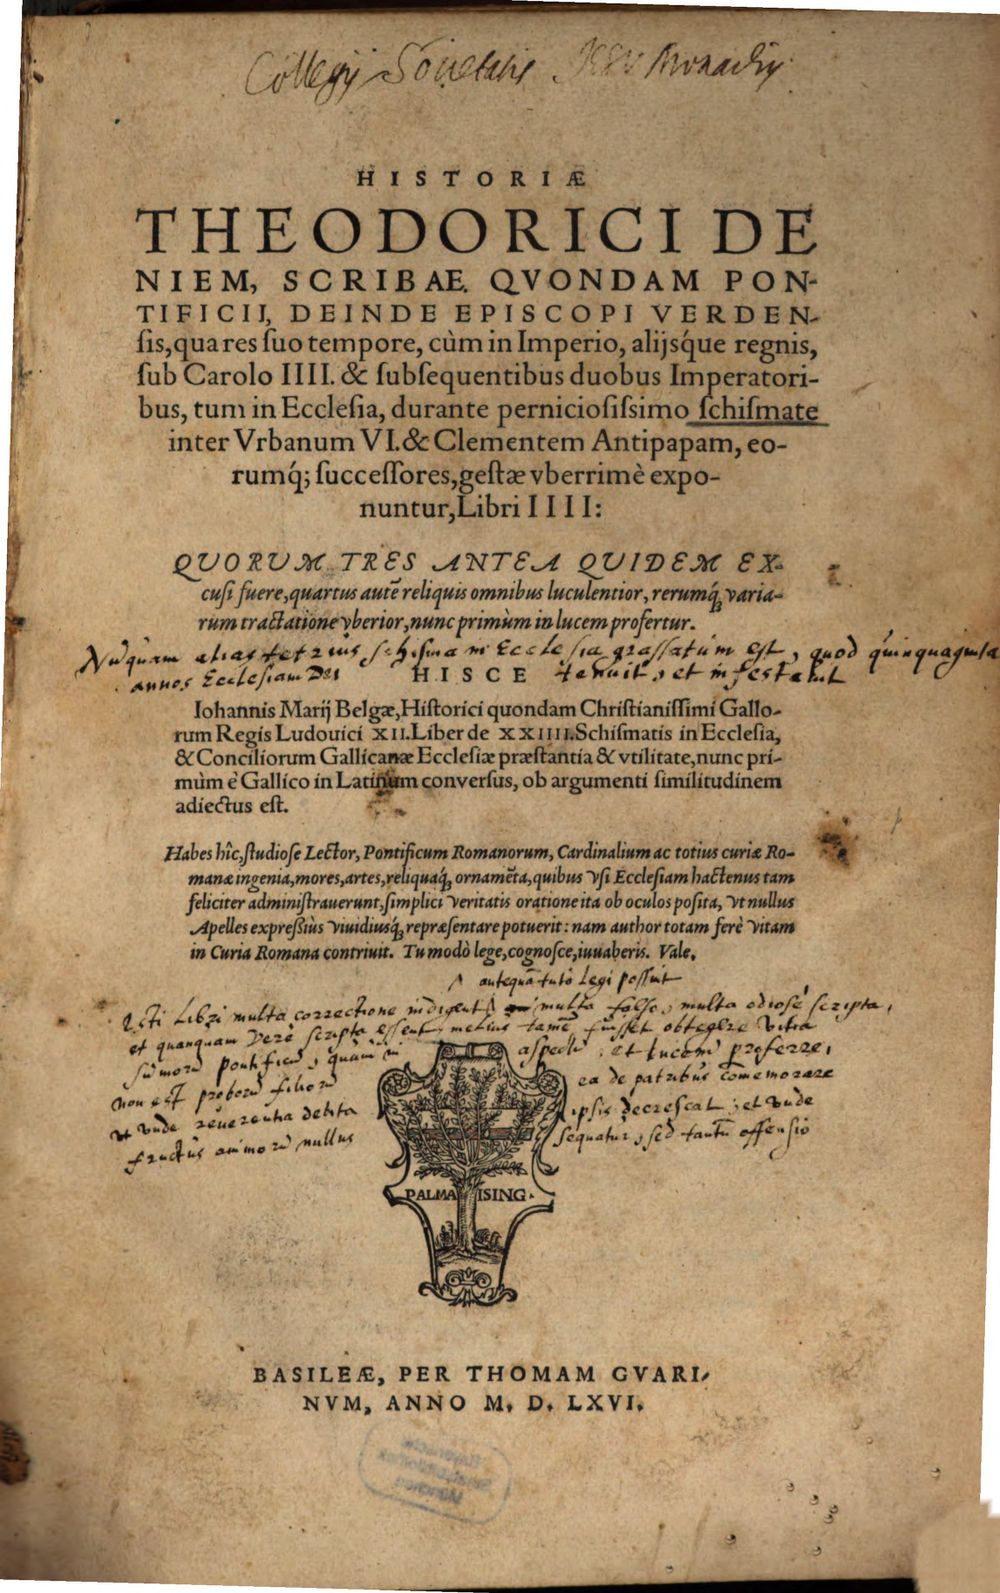 Collegij Societatis Jesu Monachij.
HISTORIÆ
THEODORICI DE
NIEM, SCRIBAE. QVONDAM PON-
TIFICII, DEINDE EPISCOPI VERDEN-
ſis, qua res ſuo tempore, cùm in Imperio, alijsq́ue regnis,
ſub Carolo IIII. & ſubſequentibus duobus Imperatori-
bus, tum in Eccleſia, durante pernicioſiſsimo ſchiſmate
inter Vrbanum VI. & Clementem Antipapam, eo-
rumq́; ſucceſſores, geſtæ vberrimè expo-
nuntur, Libri IIII:
QUORUM TRES ANTEA QUIDEM EX-
cuſi fuere, quartus autẽ reliquis omnibus luculentior, rerumq́; varia-
rum tractatione vberior, nunc primùm in lucem profertur.
Nũquam alias tetrius schisma in Ecclesia grassatum est, quod quinquaginta
annos Ecclesiam Dei HISCE tenuit, et infestauit
Iohannis Marij Belgæ, Hiſtorici quondam Chriſtianiſſimi Gallo-
rum Regis Ludouici XII. Liber de XXIIII. Schiſmatis in Eccleſia,
& Conciliorum Gallicanæ Eccleſiæ præſtantia & vtilitate, nunc pri-
mùm è Gallico in Latinum conuerſus, ob argumenti ſimilitudinem
adiectus eſt.
Habes hîc, ſtudioſe Lector, Pontificum Romanorum, Cardinalium ac totius curiæ Ro-
manæ ingenia, mores, artes, reliquaq́; ornamẽta, quibus vſi Eccleſiam hactenus tam
feliciter adminiſtrauerunt, ſimplici veritatis oratione ita ob oculos poſita, vt nullus
Apelles expreſsiùs viuidiusq́; repræſentare potuerit: nam author totam ferè vitam
in Curia Romana contriuit. Tu modò lege, cognoſce, iuuaberis. Vale.
antequã tutò legi possint
Isti Libri multa correctione indigent multa falso, multa odiosè scripta,
et quanquam verè scripta essent, melius tamẽ fuisset obtegere vitia
sum̃orũ pontificũ, quàm in aspectũ, et lucem proferre,
non est proborũ filiorũ ea de patribus com̃emorare
vt vnde reuerentia debita ipsis decrescat, et vnde
fructus animorũ nullus sequatur, sed tantũ offensio
PALMA ISING.
BASILEÆ, PER THOMAM GVARI-
NVM, ANNO M. D. LXVI.